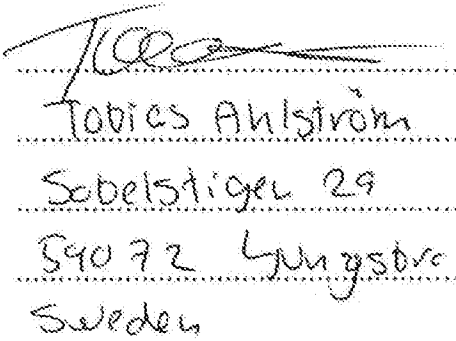 Tobias Ahlström
Sabelstigen 29
59072 Ljungsbro
Sweden